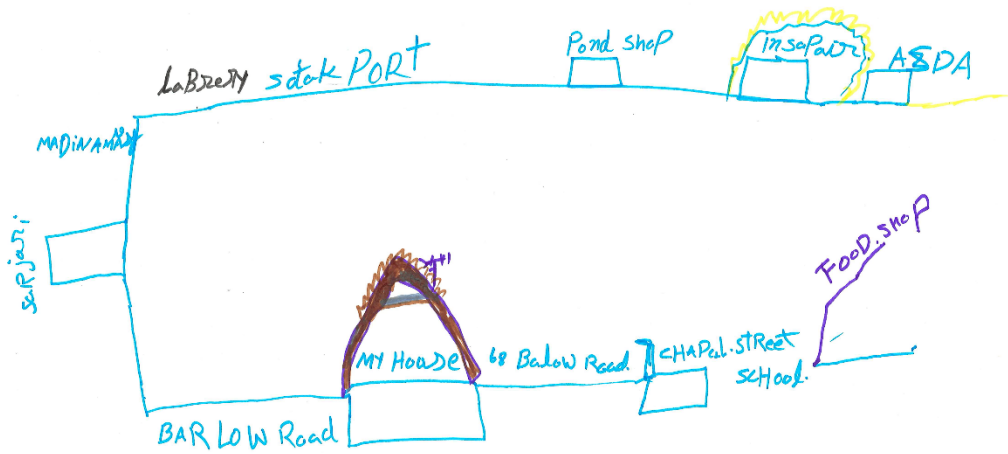 LaBrery sotok PORt
Pond Shop
insaPairr
ASDA
MADiNAMAST
saRjari
FOOD.shop
MY House
68 Balow Road
CHAPal.stReet
scHool.
BARLOW Road